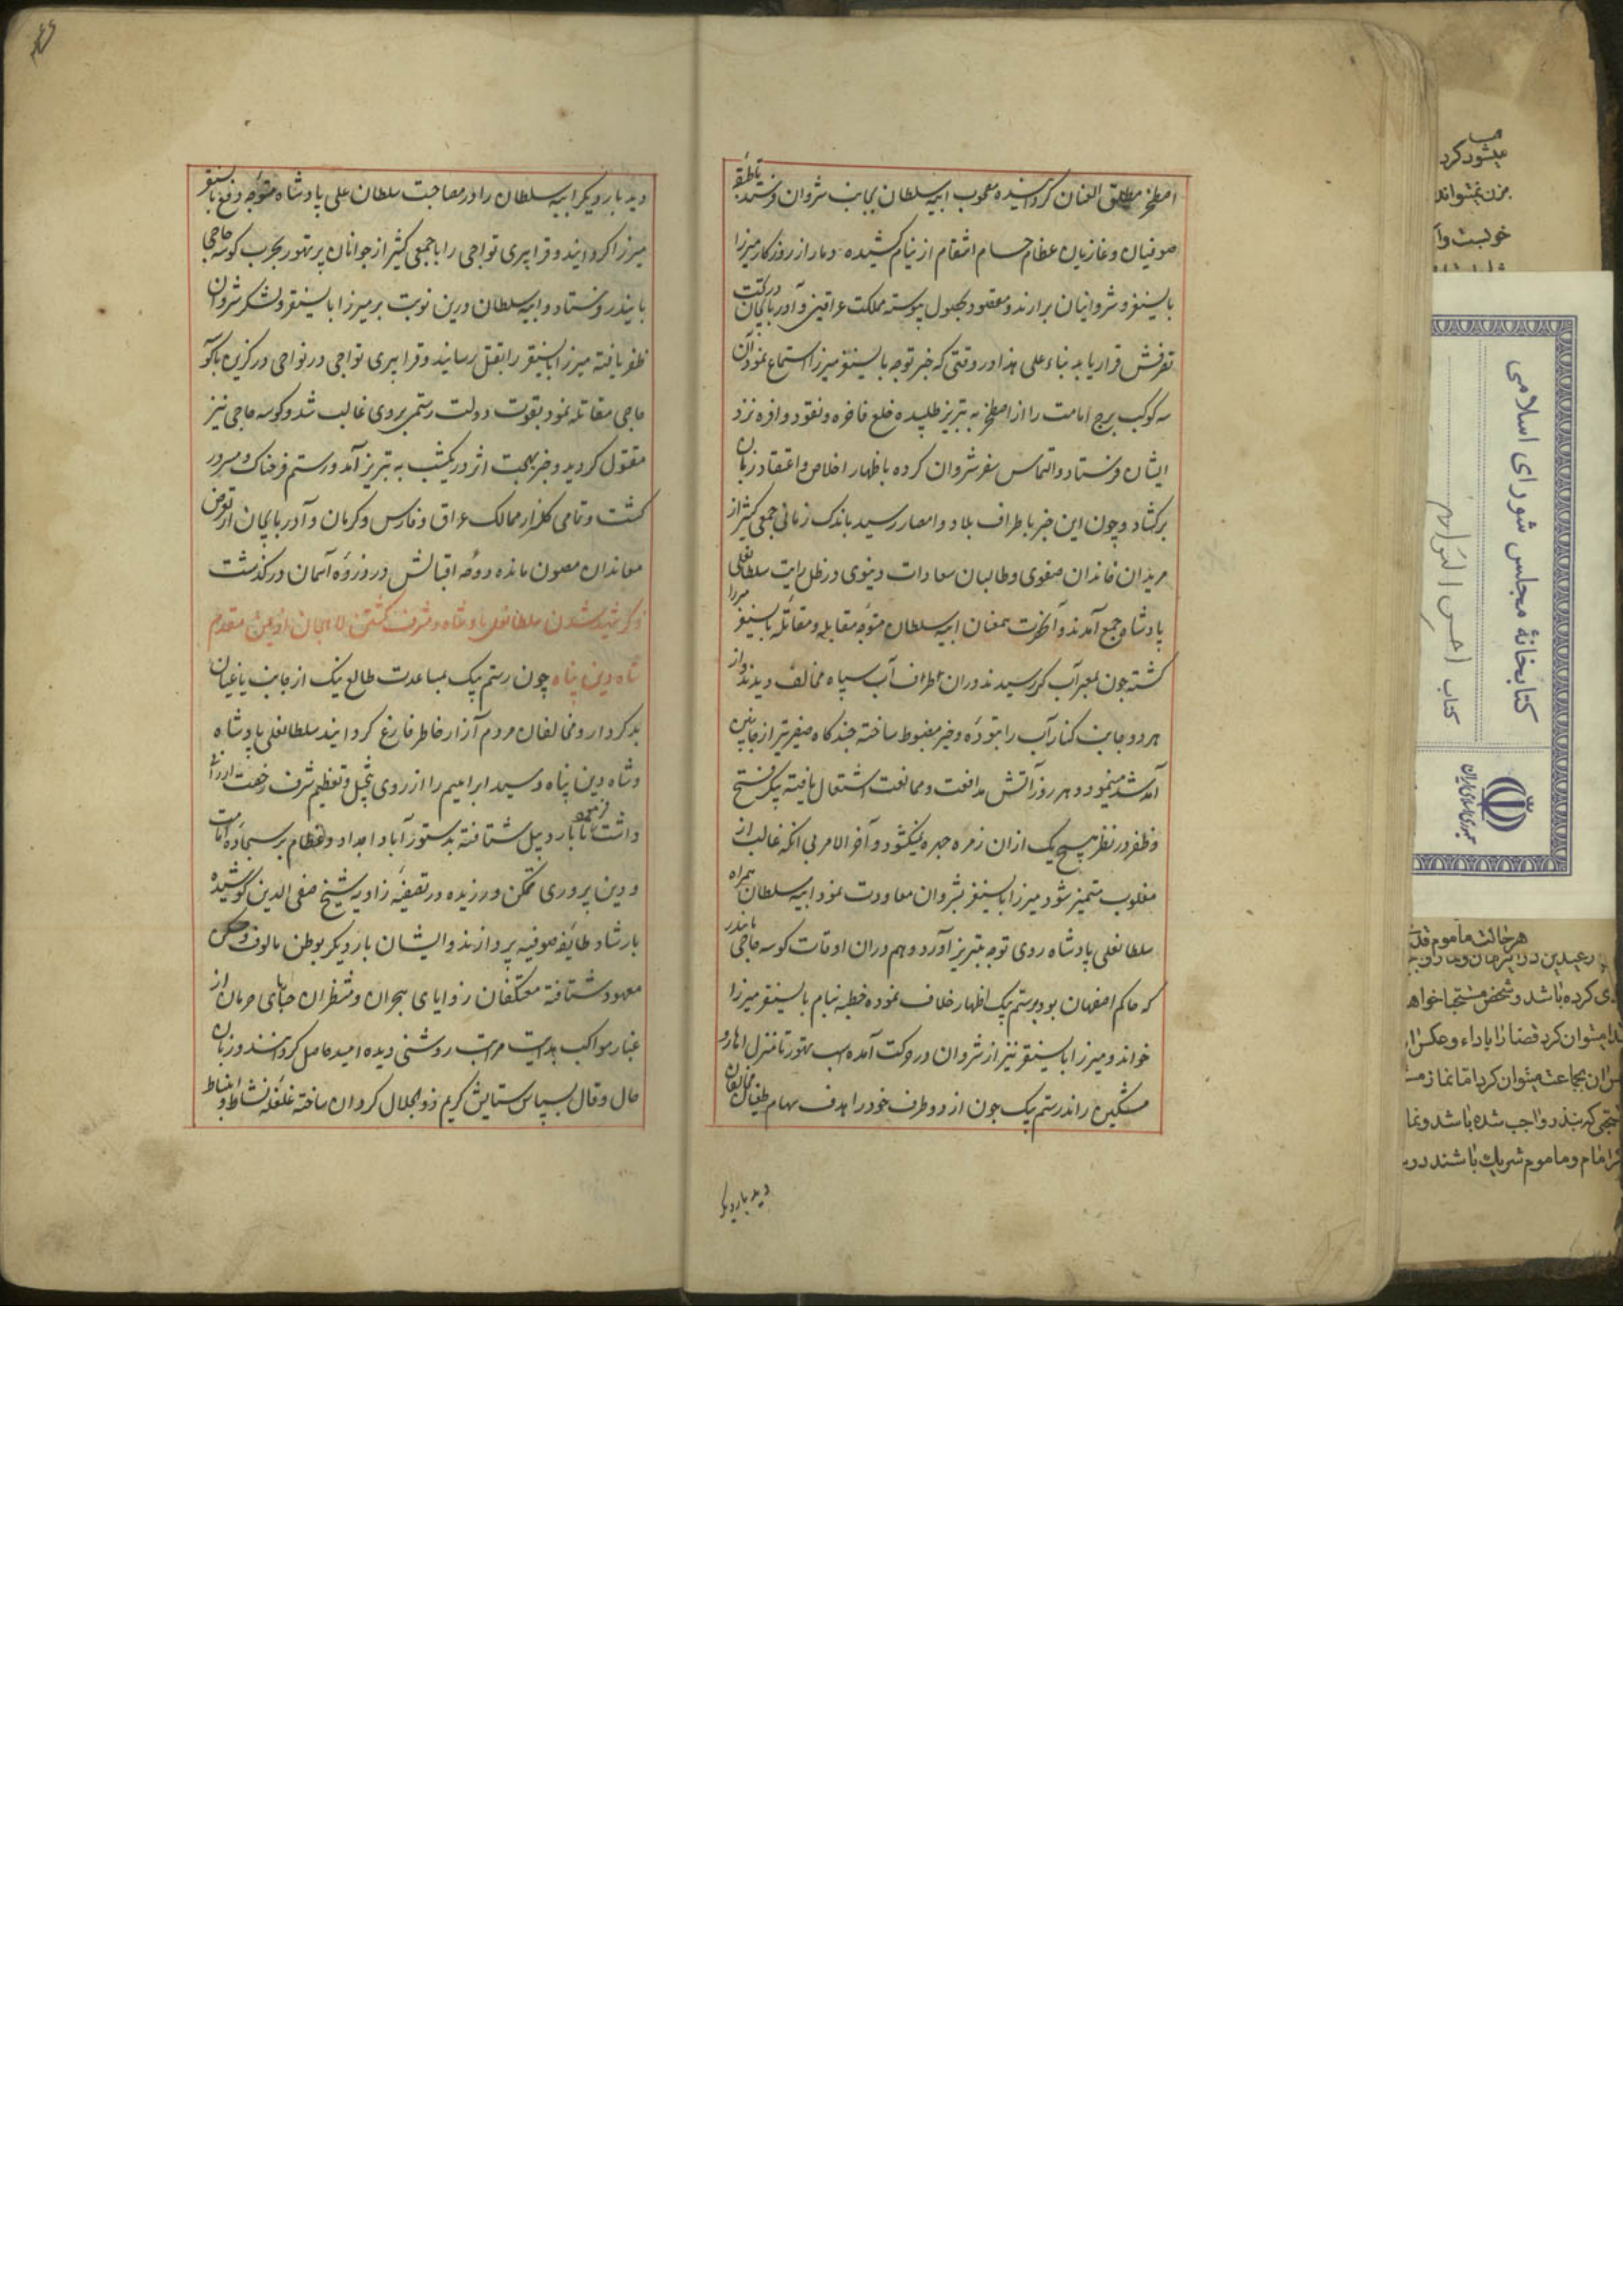 اصطخر مطلق العنان گردانیده مصحوب ابیه سلطان بجانب شروان فرستد تا طبقه
صوفیان و غازیان عظام حسام انتقام از نیام کشیده دمار از روزگار میرزا
بایسنقر و شروانیان برارند و مقصود بحصول پیوسته مملکت عراقین و آذربایجان در تحت
تصرفش قرار یابد بناء علی هذا در وقتی که خبر توجه بایسنقر میرزا استماع نمود آن
سه کوکب برج امامت را از اصطخر به تبریز طلبیده خلع فاخره و نقود وافره نزد
ایشان فرستاد و التماس سفر شروان کرده باظهار اخلاص و اعتقاد زبان
برکشاد و چون این خبر باطراف بلاد و امصار رسید باندک زمانی جمعی کثیر از
مریدان خاندان صفوی و طالبان سعادات دینوی در ظل رایت سلطانعلی
پادشاه جمع آمدند و آنحضرت همعنان ابیه سلطان متوجه مقابله و مقاتله بایسنقر میرزا
کشته چون بمعبر آب کر رسیدند دران اطراف آب سپاه مخالف دیدند و از
هر دو جانب کنار آب را بتوده و خیر مضبوط ساخته چند کاه صفیر تیر از جانبین
آمد شد مینمود و هر روز آتش مدافعت و ممانعت اشتعال یافته پیک فتح
و ظفر در نظر هیچ یک ازان زمره چهره نمیکشود و آخر الامر بی انکه غالب از
مغلوب متمیز شود میرزا بایسنقر بشروان معاودت نمود ابیه سلطان همراه
سلطانعلی پادشاه روی توجه بتبریز آورد و هم دران اوقات کوسه حاجی بایندر
که حاکم اصفهان بود برستم بیک اظهار خلاف نموده خطبه بنام بایسنقر میرزا
خواند و میرزا بایسنقر نیز از شروان در حرکت آمده اسب تهور تا منزل اهار و
مشکین راند رستم بیک چون از دو طرف خود را هدف سهام طغیان مخالفان
دید بار دیکر
دید بار دیکر ابیه سلطان را در مصاحبت سلطان علی پادشاه متوجه دفع بایسنقر
میرزا کردانید و قرا پیری تواجی را با جمعی کثیر از جوانان پر تهور بحرب کوسه حاجی
بایندر فرستاد و ابیه سلطان درین نوبت بر میرزا بایسنقر و لشکر شروان
ظفر یافته میرزا بایسنقر را بقتل رسانید و قرا پیری تواجی در نواحی درکزین با کوسه
حاجی مقاتله نمود بقوت دولت رستم بر وی غالب شد و کوسه حاجی نیز
مقتول کردید و خبر بهجت اثر در یکشب به تبریز آمد و رستم فرحناک و مسرور
کشت و تمامی کلزار ممالک عراق و فارس و کرمان و آذربایجان از تعرض
معاندان مصون مانده دوحه اقبالش در ذروه آسمان درکذشت
ذکر شهید شدن سلطانعلی پادشاه و مشرف کشتن لاهیجان از یمن مقدم
شاه دین پناه چون رستم بیک بمساعدت طالع نیک از جانب یاغیان
بد کردار و مخالفان مردم آزار خاطر فارغ کردانید سلطانعلی پادشاه
و شاه دین پناه و سید ابراهیم را از روی تبجیل و تعظیم شرف رخصت ارزانی
داشت تا باردبیل شتافته بدستور آباد اجداد و عظام بر سجاده امامت
و دین پروری متمکن ورزیده در تصفیه زاویه شیخ صفی الدین کوشیده
بارشاد طایفه صوفیه پردازند و ایشان بار دیکر بوطن مالوف و مسکن
معهود شتافته معتکفان زوایای هجران و منتظران خبایای حرمان از
غبار مواکب هدایت مراتب روشنی دیده امید حاصل کردانیدند و زبان
حال و قال بسپاس ستایش کریم ذو الجلال کردان ساخته غلغله نشاط و انبساط
کتابخانهٔ مجلس شورای اسلامی
کتاب احسن التواریخ
جمهوری اسلامی ایران
میشود کرد
هر حالت ماموم